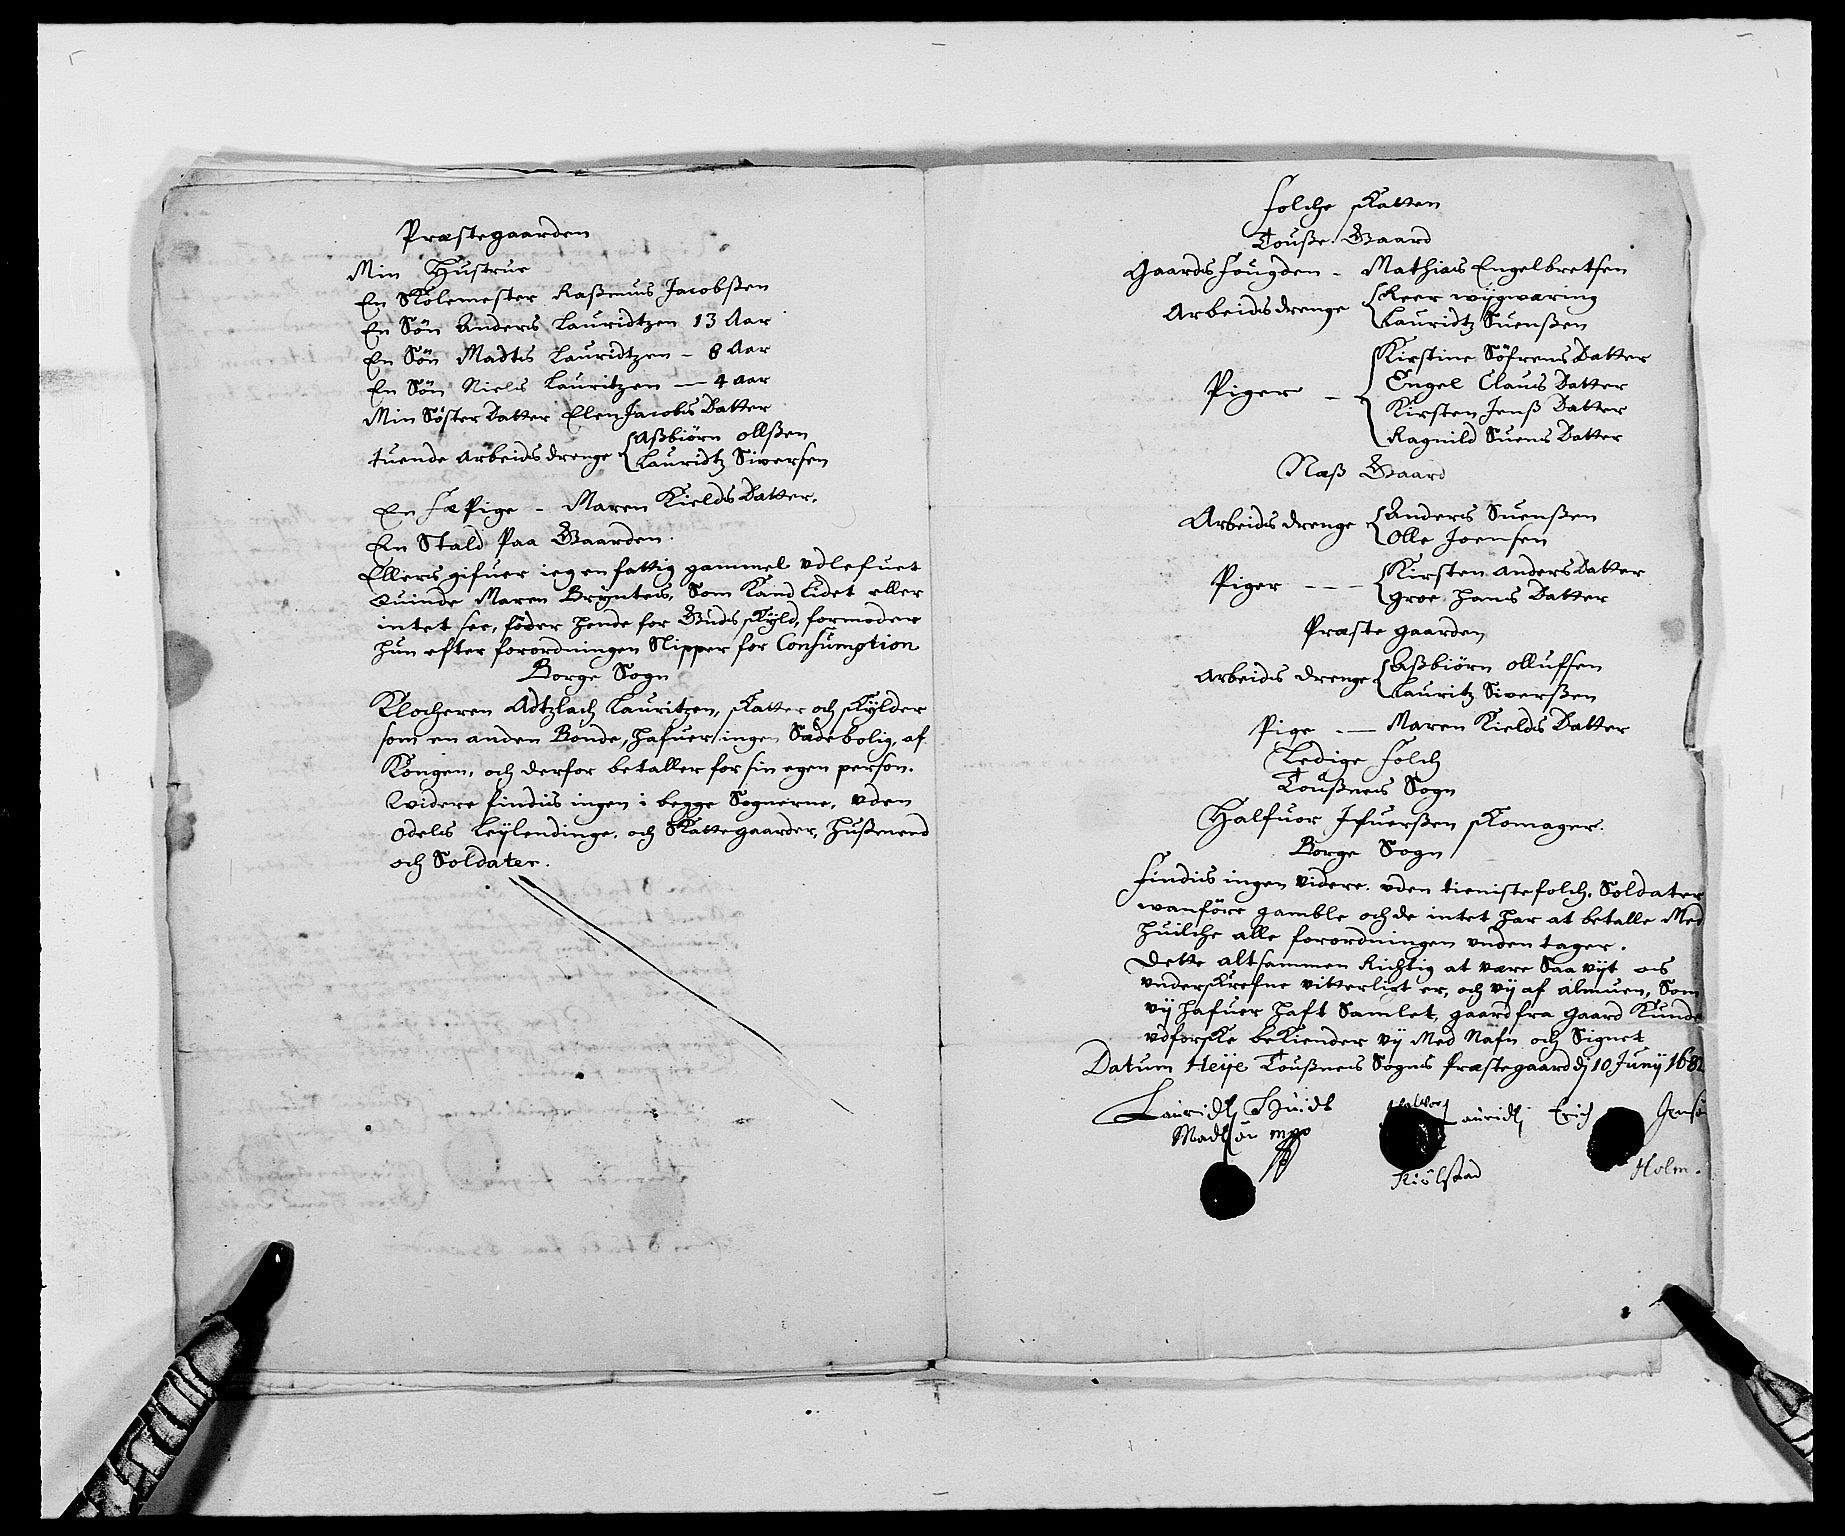 Præstegaarden
Min Hustrue
En Skolemester Rasmus Jacobsen
En Sön Anders Lauridtzen 13 Aar
En Sön Madtis Lauridtzen - 8 Aar
En Sön Niels Lauritzen - 4 aar
Min Söster Datter Elen Jacobs Datter
tuende Arbeids drenge { Aßbiörn ollßen
Lauridtz Siversen
En fæ Pige - Maren Kields Datter.
En Stald Paa Gaarden.
Ellers gifuer ieg en fattig gammel vdlefuet
quinde Maren Brynters, Som Kand lidet eller
intet see, föder hende for Guds skyld, formoder
hun efter forordningen Slipper for Consumption
Borge Sogn
Klocheren Adtzlach Lauritzen, skatter och skylder
som en anden Bonde, hafuer ingen Sædebolig, af
Kongen, och derfor betaller for sin egen person.
Widere findis ingen i begge Sognerne, vden
Odels Leylendinge, och Skattegaarder, Hußmend
och Soldater.
Folche skatten
Touße Gaard
Gaards fougden - Mathias Engelbretsen
Arbeidsdrenge { Reer wijgwæring
Lauridtz Suenßen
Piger - { Kirstine Söfrens Datter
Engel Claus Datter
Kirsten Jenß Datter
Ragnild Suens Datter
Næß Gaard
Arbeids drenge { Anders Suenßen
Olle Joensen
Piger - - { Kirsten Anders Datter
Groe Hans Datter
Præste gaarden
Arbeids drenge { Aßbiörn ollufsen
Lauritz Siverßen
Pige - - Maren Kields Datter
Ledige folch
Toußnes Sogn
Halfuor Ifuerßen skomager.
Borge Sogn
Findis ingen videre. vden tienistefolch, Soldater
wanföre gamble och de intet har at betalle Med
huilche alle forordningen vnden tager.
Dette altsammen Richtig at være Saa vijt os
vnderskrefne vitterligt er, och vij af Almuen, Som
vij hafuer haft Samlet, gaard fra gaard Kunde
vdforske bekiender vij Med Nafn och Signet
Datum Heije Toußnes Sogns Præstegaard dj 10 Junij 1682
Lauridtz Lauridtz Erich Jensö
Madtzön mpp
Kiölstad Holm.